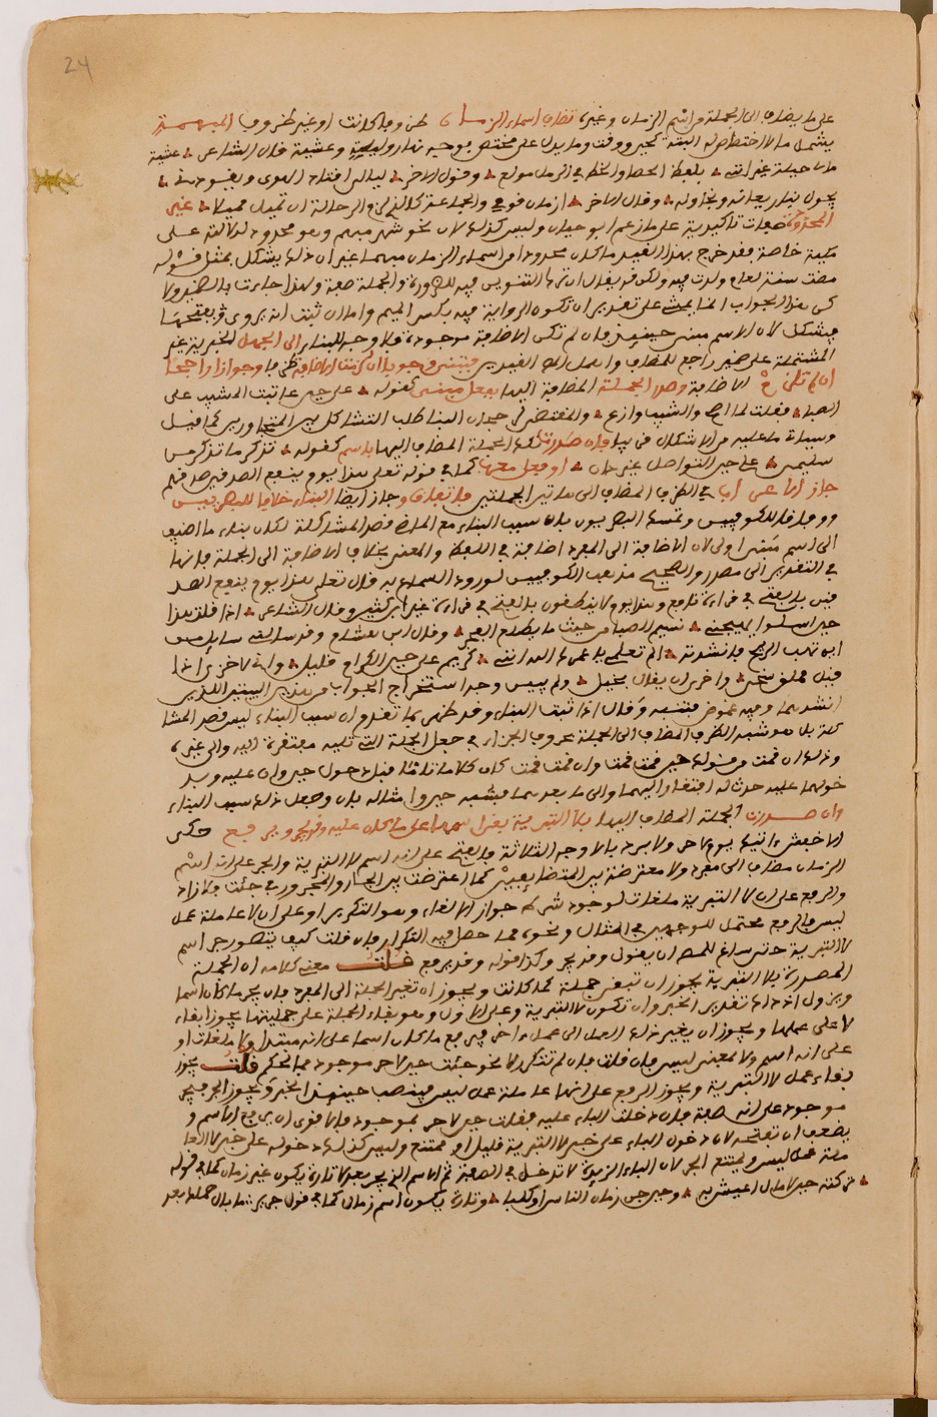 24
على ما يضاف الى الجملة من اسم الزمان وغيره تضاف اسماء الزمان ظروفا كانت او غير ظروف المبهمة
يشمل ما لا اختصاص له البتة كحين ووقت وما يدل على مختص بوجه نهار وليلة وعشية قال الشاعر عشية
بلفظ الحصا والخط في الدار مولع وقول الاخر ليالي اقتاد الهوى ويقودني
يجول بنا ريعانه ونحاوله وقال الاخر ازمان قومي والجماعة كالذي لزم الرحالة ان تميل مميلا غير
المحدودة صفات تاكيدية على ما زعم ابو حيان وليس كذلك لان نحو شهر مبهم وهو محدود لدلالته على
خاصة فقد خرج بهذا القيد ما كان محدودا من اسماء الزمان مبهما غير ان ذلك يشكل بمثل قوله
مضت سنة لعام ولدت فيه ولكن قد يقال ان التنوين فيه للضرورة والجملة صفة ولهذا جاءت بالضمير ولا
كن هذا الجواب انما يمشي على تقدير ان تكون الرواية فيه بكسر الميم واما ان ثبت انه يروى فيه بفتحها
فيشكل لان الاسم مبني حينئذ فان لم تكن الاضافة موجودة فلا وجه للبناء الى الجمل الخبرية غير
المشتملة على ضمير راجع للمضاف واهمل هذا القيد فتبنى وجوبا ان كانت الاضافة ظروفا وجوازا راجحا
ان لم تلزم الاضافة وصدر الجملة المضافة اليها بفعل مبني كقوله على حين عاتبت المشيب على
الصبا فقلت الما اصح والشيب وازع والمقتضي في حيان البنا طلب التشاكل بين المتجاورين كما قيل
وسياتي ما عليه من الاشكال في بابه وان صدرت تلك الجملة المضاف اليها باسم كقوله تذكر ما تذكر من
سليمى على حين التواصل غير دان او فعل معرب كما في قوله تعالى هذا يوم ينفع الصدقين صدقهم
جاز اعرابها اي الظرف المضاف الى هاتين الجملتين باتفاق وجاز ايضا البناء خلافا للبصريين
ووفاقا للكوفيين وتمسك البصريون بان سبب البناء مع الماضي قصد المشاكلة لكان بناء ما اضيف
الى اسم مبني اولى لان الاضافة الى المفرد اضافة في اللفظ والمعنى بخلاف الاضافة الى الجملة فانها
في التقدير الى مصدر والصحيح مذهب الكوفيين لورود السماع به قال تعلى هذا يوم ينفع الصد
قين بالفتح في قراءة نافع وهذا يوم لا ينطقون بالفتح في قراءة غير ابن كثير وقال الشاعر اذا قلت هذا
حين اسلو يهيجني نسيم الصبا من حيث ما يطلع الفجر وقال ابن هشام وقد سالني سايل من
اين تهب الريح فانشدته الم تعلمي يا عمرك الله انني كريم على حين الكرام قليل واني لا اخزى اذا
قيل مملق سخي واخزى ان يقال بخيل ولم يبين وجه استخراج الجواب من هذين البيتين اللذين
انشدهما وفيه غموض فتنبه وقال اذا ثبت البناء وقد ظهر بما تقدم ان سبب البناء ليس قصد المشا
كلة بل هو شبه الظرف المضاف الى الجملة بحروف الجزاء في جعل الجملة التي تليه مفتقرة اليه والى غيره
وذلك ان قمت من قولك حين قمت قمت وان قمت قمت كان كلاما تاما قبل دخول حين وان عليه وبعد
خولهما عليه حدث له افتقار اليهما والى ما بعدهما فشبه حين وامثاله بان وجعل ذلك سبب البناء
وان صدرت الجملة المضاف اليها بلا التبرية بقي اسمها على ما كان عليه وقد يجر وقد يرفع حكى
الاخفش اتيتك يوم لا حر ولا برد بالاوجه الثلاثة فالفتح على انه اسم لا التبرية والجر على ان اسم
الزمان مضاف الى مفرد ولا معترضة بين المتضايفين كما اعترضت بين الجار والمجرور في جئت بلا زاد
والرفع على ان لا التبرية ملغات لوجود شرط جواز الالغاء وهو التكرير او على ان لا عاملة عمل
ليس فالرفع محتمل للوجهين في المثال ونحوه مما حصل فيه التكرار فان قلت كيف يتصور جر اسم
لا التبرية حتى ساغ للمص ان يقول وقد يجر وكذا قوله وقد يرفع قلت معنى كلامه ان الجملة
المصدرة بلا التبرية يجوز ان تبقى جملة كما كانت ويجوز ان تغير الجملة الى المفرد فان يجر ما كان اسما
ويزول اذ ذاك تقدير الخبر وان تكون لا التبرية وعلى الاول وهو بقاء الجملة على جمليتها يجوز ابقاء
لا على عملها ويجوز ان يغير ذلك العمل الى عمل اخر فيرفع ما كان اسما على انه مبتدا ولا ملغات او
على انه اسم ولا بمعنى ليس فان قلت فان لم تتكرر لا نحو جئت حين لا حر موجود فما الحكم قلت يجوز
بقاء عمل لا التبرية ويجوز الرفع على انها عاملة عمل ليس فينصب حينئذ الخبر ويجوز الجر فيجر
موجود على انه صفة فان دخلت الباء عليه فقلت حين لا حر بموجود فالاقوى ان يرفع الاسم و
يضعف ان تفتحه لان دخول الباء على خبر لا التبرية قليل او ممتنع وليس كذلك دخوله على خبر لا العا
ملة عمل ليس ويمتنع الجر لان الباء الزيدة لا تدخل في الصفة ثم الاسم الذي يجر بعد لا تارة يكون غير زمان كما في قوله
وحين جن زمان الناس او كلبا وتارة يكون اسم زمان كما في قول جرير ما بال جهلك بعد